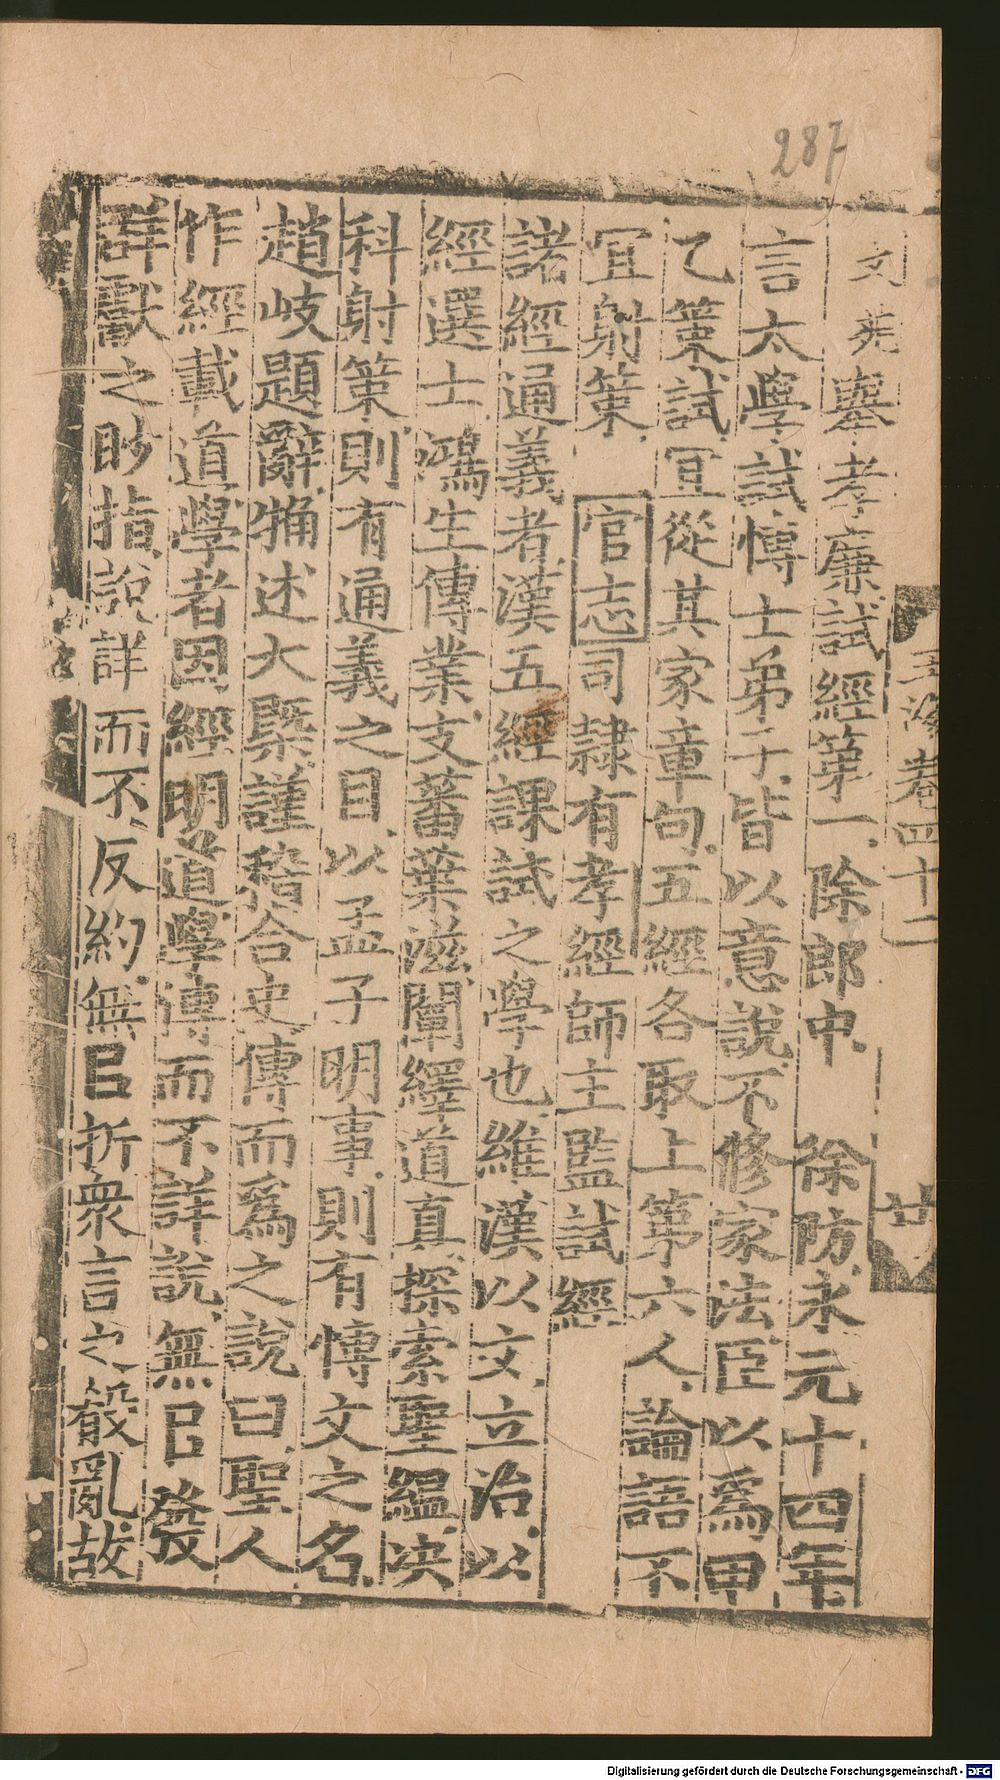 287
玉海卷四十二
廿
文苑舉孝廉試經第一除郎中 徐防永元十四年
言太學試博士弟子皆以意說不修家法臣以為甲
乙策試宜從其家章句五經各取上第六人論語不
宜射策 官志司隸有孝經師主監試經
諸經通義者漢五經課試之學也維漢以文立治以
經選士鴻生傳業支蕃葉滋闡繹道真探索聖緼决
科射策則有通義之目以孟子明事則有博文之名
趙岐題辭 述大槩謹稽合史傳而為之說曰聖人
作經載道學者因經明道學傳而不詳說無㠯發
群獻之眇指說詳而不反約無㠯折衆言之殽亂故
Digitalisierung gefördert durch die Deutsche Forschungsgemeinschaft - DFG